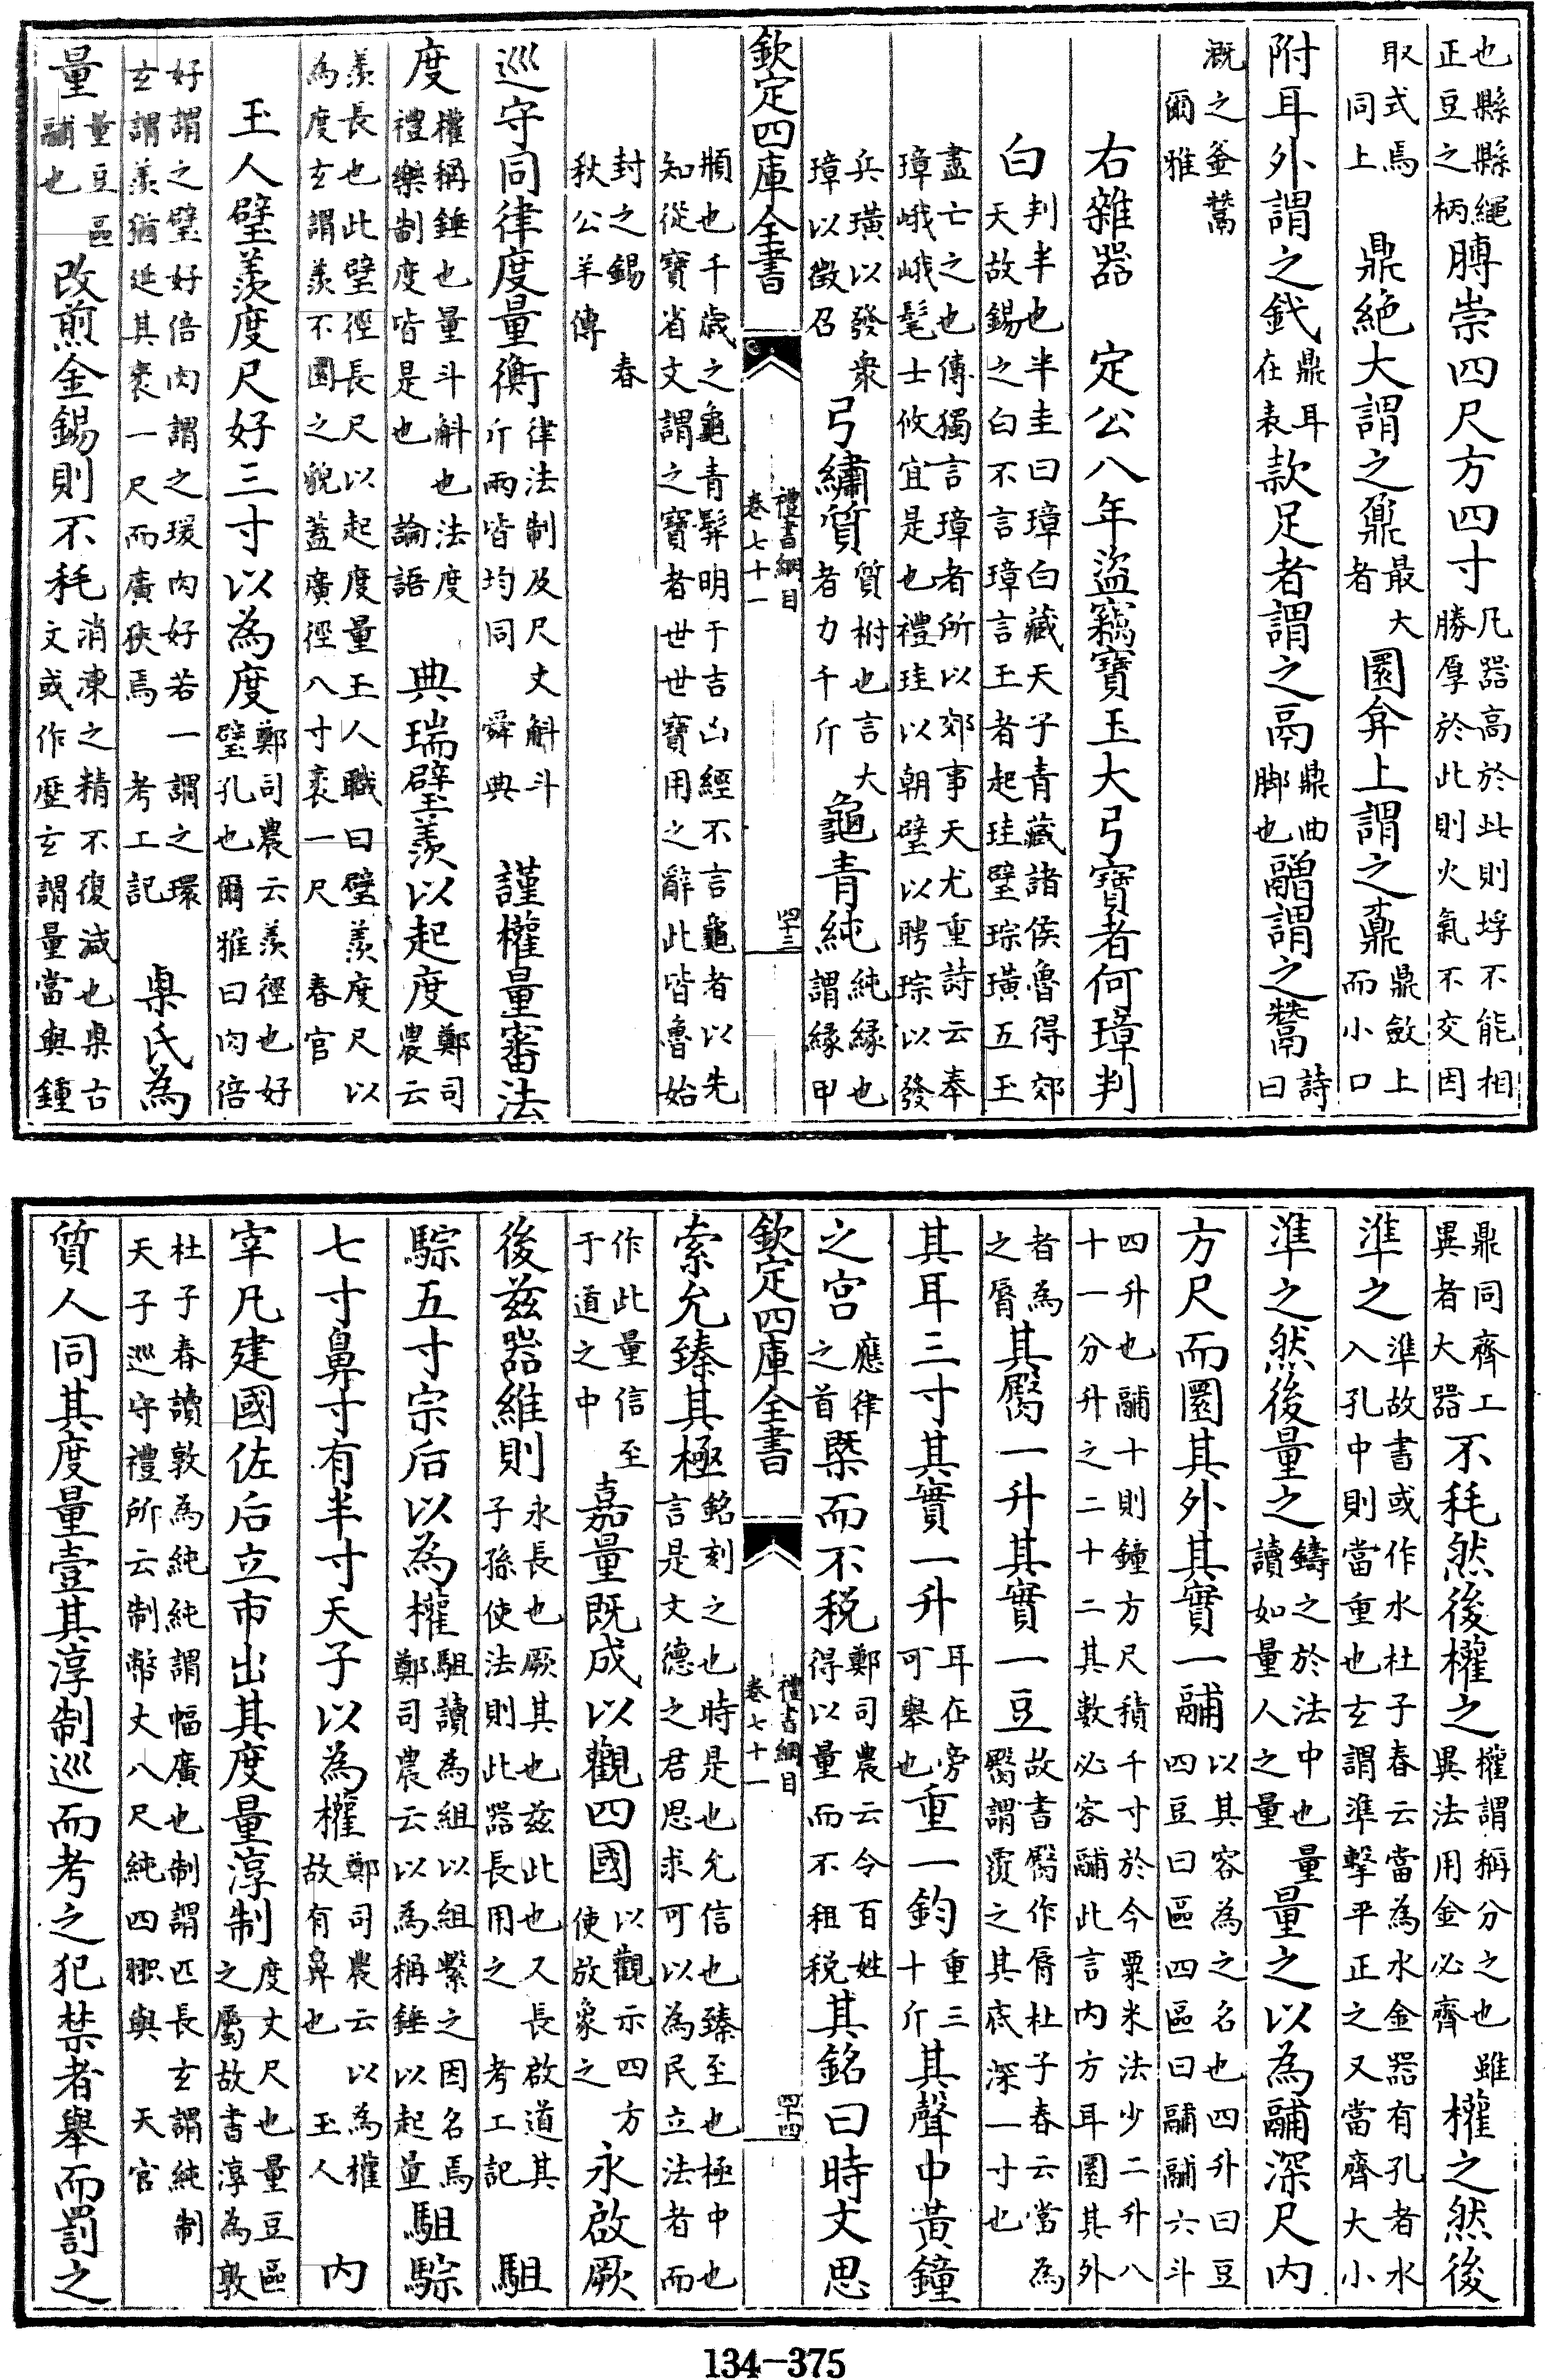 也縣縣繩正豆之柄膊崇四尺方四寸凡器高於此則垺不能相勝厚於此則火氣不交因
取式焉同上　鼎絕大謂之鼐最大者　圜弇上謂之鼒鼎斂上而小口
附耳外謂之釴鼎耳在表款足者謂之鬲鼎曲脚也䰝謂之鬵詩曰
溉之釜鬵爾雅
右雜器　定公八年盜竊寶玉大弓寶者何璋判
白判半也半圭曰璋白藏天子青藏諸侯魯得郊天故錫之白不言璋言玉者起珪璧琮璜五玉
盡亡之也傳獨言璋者所以郊事天尤重詩云奉璋峨峨髦士攸宜是也禮珪以朝璧以聘琮以發
兵璜以發衆璋以徵召弓繡質質柎也言大者力千斤龜青純純緣也謂緣甲
欽定四庫全書　禮書綱目卷七十一　四十三
也千歲之龜青髯明于吉凶經不言龜者以先知從寶省文謂之寶者世世寶用之辭此皆魯始
封之錫　春秋公羊傳
巡守同律度量衡律法制及尺丈斛斗斤兩皆均同　舜典　謹權量審法
度權稱錘也量斗斛也法度禮樂制度皆是也　論語　典瑞璧羨以起度鄭司農云
羨長也此璧徑長尺以起度量玉人職曰璧羨度尺以為度玄謂羨不圜之貌蓋廣徑八寸袤一尺　春官
玉人璧羨度尺好三寸以為度鄭司農云羨徑也好璧孔也爾雅曰肉倍
好謂之璧好倍肉謂之瑗肉好若一謂之環玄謂羨猶延其袤一尺而廣狹焉　考工記　㮚氏為
量量豆區鬴也改煎金錫則不耗消涷之精不復減也㮚古文或作歷玄謂量當與鍾
鼎同齊工異者大器不耗然後權之權謂稱分之也雖異法用金必齊權之然後
準之準故書或作水杜子春云當為水金器有孔者水入孔中則當重也玄謂準擊平正之又當齊大小
準之然後量之鑄之於法中也量讀如量人之量量之以為鬴深尺內
方尺而圜其外其實一鬴以其容為之名也四升曰豆四豆曰區四區曰鬴鬴六斗
四升也鬴十則鐘方尺積千寸於今粟米法少二升八十一分升之二十二其數必容鬴此言內方耳圜其外
者為之脣其臋一升其實一豆故書臋作脣杜子春云當為臋謂覆之其底深一寸也
其耳三寸其實一升耳在旁可舉也重一鈞重三十斤其聲中黃鐘
之宮應律之首㮣而不稅鄭司農云令百姓得以量而不租稅其銘曰時文思
欽定四庫全書　禮書綱目卷七十一　四十四
索允臻其極銘刻之也時是也允信也臻至也極中也言是文德之君思求可以為民立法者而
作此量信至于道之中嘉量既成以觀四國以觀示四方使放象之永啟厥
後茲器維則永長也厥其也茲此也又長啟道其子孫使法則此器長用之　考工記　駔
騌五寸宗后以為權駔讀為組以組繫之因名焉鄭司農云以為稱錘以起量駔騌
七寸鼻寸有半寸天子以為權鄭司農云以為權故有鼻也　玉人　內
宰凡建國佐后立市出其度量淳制度丈尺也量豆區之屬故書淳為敦
杜子春讀敦為純純謂幅廣也制謂匹長玄謂純制天子巡守禮所云制幣丈八尺純四䏸與　天官
質人同其度量壹其淳制巡而考之犯禁者舉而罰之
134-375